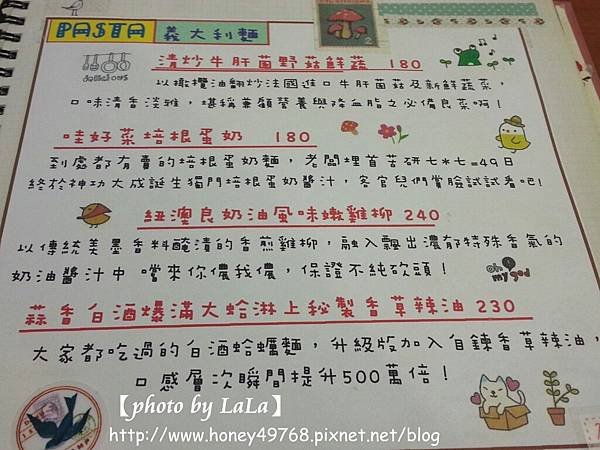 PASTA 義大利麵
清炒牛肝菌野菇鮮蔬 180
delicious
以橄欖油翻炒法國進口牛肝菌菇及新鮮蔬菜，
口味清香淡雅，堪稱兼顧營養與降血脂之必備良菜啊！
哇好菜培根蛋奶 180
到處都有賣的培根蛋奶麵，老闆埋首苦研七*七=49日
終於神功大成誕生獨門培根蛋奶醬汁，客官兒們賞臉試試看吧！
紐澳良奶油風味嫩雞柳 240
以傳統美墨香料醃漬的香煎雞柳，融入飄出濃郁特殊香氣的
奶油醬汁中 嚐來你儂我儂，保證不純砍頭！
oh my god
蒜香白酒爆滿大蛤淋上秘製香草辣油 230
大家都吃過的白酒蛤蠣麵，升級版加入自鍊香草辣油，
口感層次瞬間提升500萬倍！
【photo by LaLa】
http://www.honey49768.pixnet.net/blog